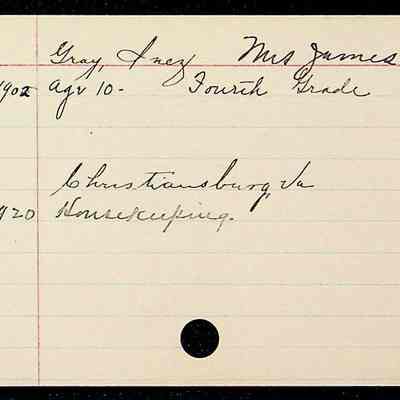 Gray, Inez Mrs James
1902 Age 10- Fourth Grade
Christiansburg, Va
Housekeeping.